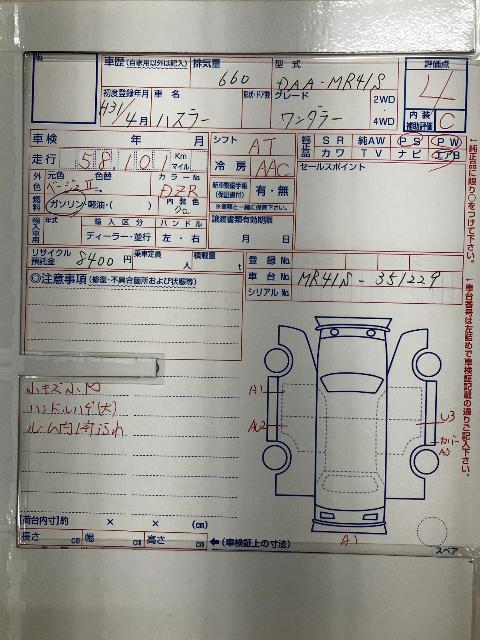 No.
車歴 (自家用以外は記入)
排気量
660
型式
DAA-MR41S
評価点
4
初度登録年月
H31/4月
車名
ハスラー
形状・ドア数
グレード
ワンダラー
2WD・4WD
内装補助評価
C
車検 年 月
シフト
AT
純正品
SR 純AW PS PW
カワ TV ナビ エアB
走行 58,101 Km マイル
冷房
AAC
セールスポイント
外色
元色 色替
ベージュⅡ
カラーNo.
DZR
新車整備手帳(保証書付)
有・無
※書類と一緒に保管下さい。
燃料
ガソリン・軽油・( )
内装色
譲渡書類有効期限
月 日
輸入車用
年式
輸入区分
ハンドル
ディーラー・並行
左・右
リサイクル預託金
8400円
乗車定員
人
積載量
t
登録No.
車台No.
MR41S-351229
シリアルNo.
◎注意事項(修復・不具合箇所および状態等)
小キズ小凹
ハンドルハゲ(大)
ルーム内1有汚れ
A1
AU2
U3
カバー
A1
スペア
【荷台内寸】約 × × (cm)
長さ cm 幅 cm 高さ cm
←(車検証上の寸法)
←純正品に限り○をつけて下さい。
←車台番号は左詰めで車検証記載の通りご記入下さい。